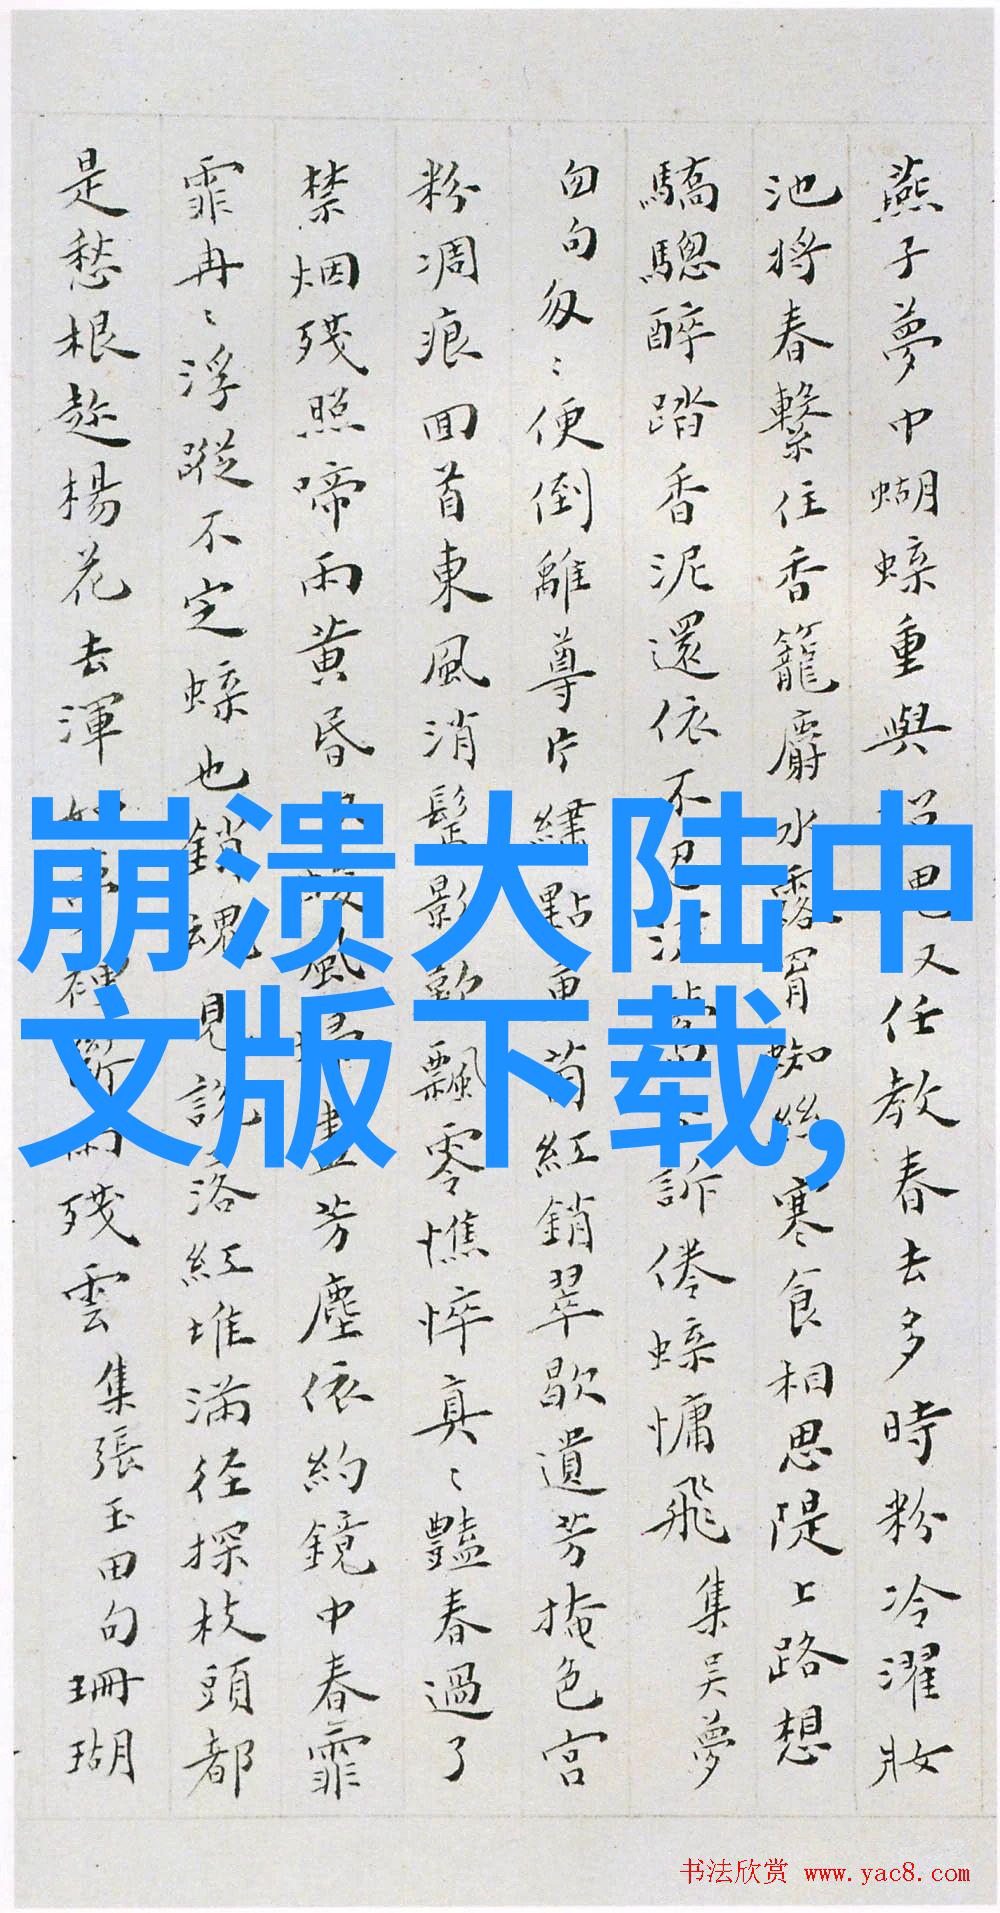 燕子夢中蝴蝶重與
又任教春去多時粉冷濯妝
池將春繫住香籠麝水
寒食相思隄上路想
驕驄醉踏香泥還依不
訴倦蝶慵飛 集吴夢
匆匆ミ便倒離尊片
紅銷翠歇遺芳掩色宫
粉凋痕回首東風消髩影
飄零憔悴真ミ豔春過了
禁烟殘照啼雨黄昏
芳塵依約鏡中春霏
霏冉ミ浮蹤不定蝶也銷魂見說
落紅堆滿径探枝頭都
是愁根趁楊花去渾
殘雲 集張玉田句 珊瑚
崩溃大陆中
文版下载,
书法欣赏 www.yac8.com